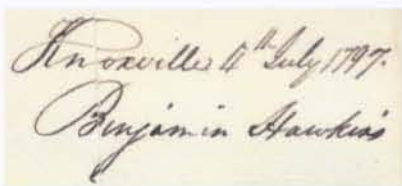 Knoxville 4th July 1797.
Benjamin Hawkins